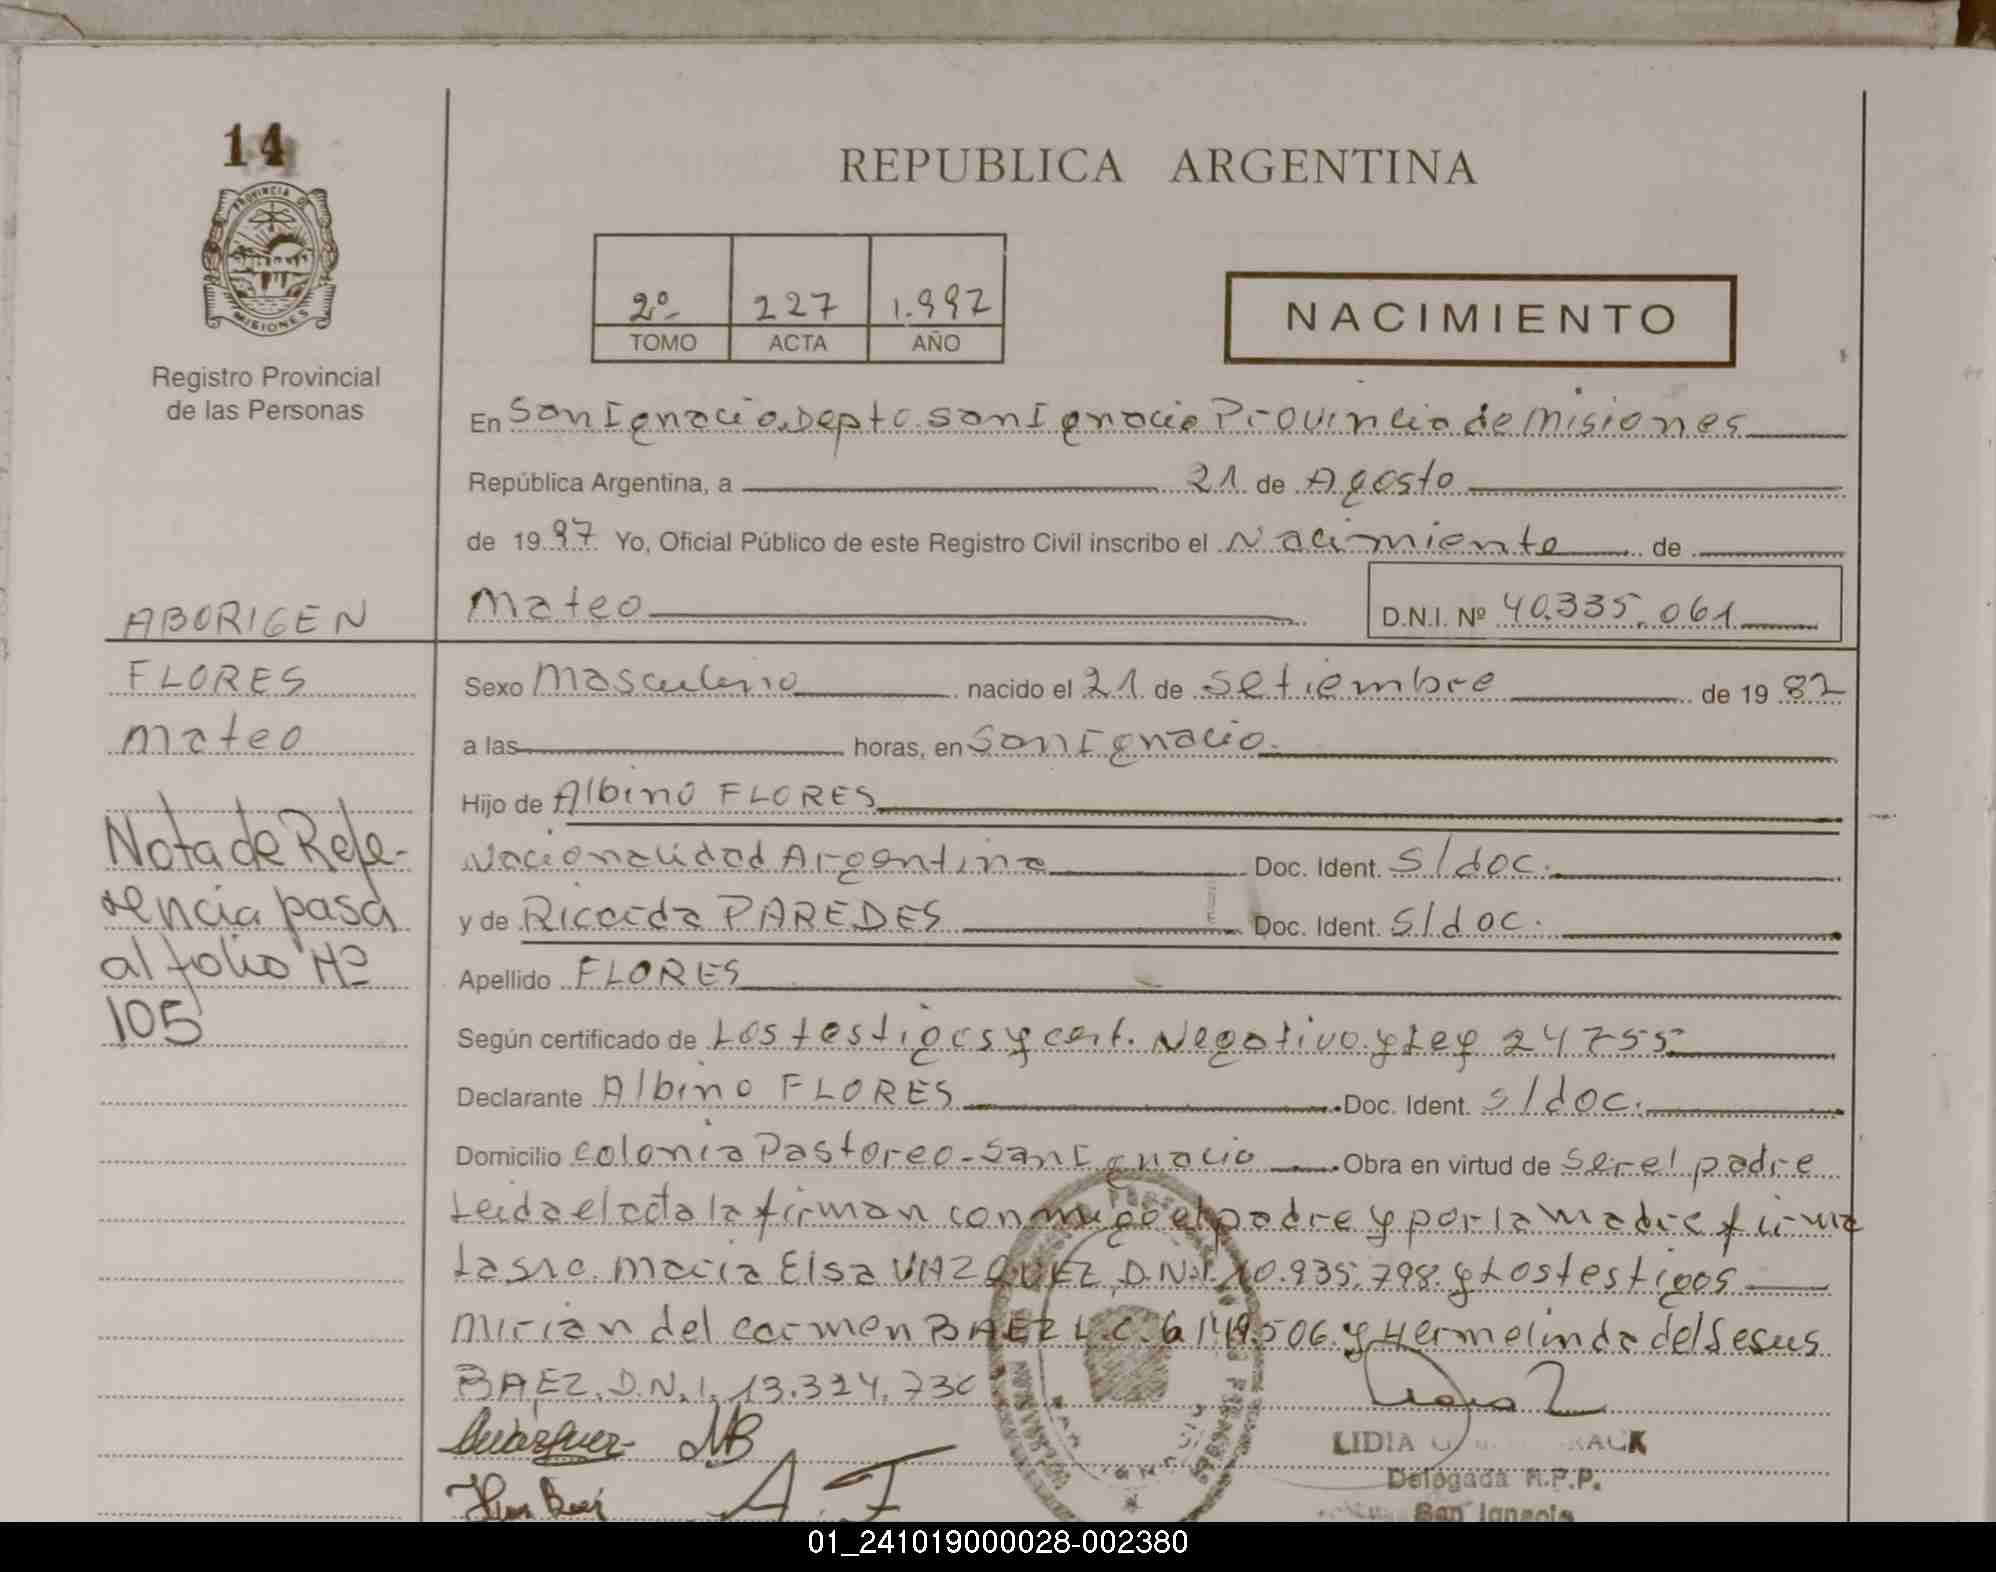 14
PROVINCIA DE
MISIONES
Registro Provincial
de las Personas
REPUBLICA ARGENTINA
2º 227 1.997
TOMO ACTA AÑO
NACIMIENTO
En San Ignacio, Depto San Ignacio Provincia de Misiones
República Argentina, a 21 de Agosto
de 1997 Yo, Oficial Público de este Registro Civil inscribo el Nacimiento de
Mateo D.N.I. Nº 40.335.061
ABORIGEN
FLORES
Mateo
Nota de Refe-
rencia pasa
al folio Nº
105
Sexo Masculino nacido el 21 de Setiembre de 1982
a las horas, en San Ignacio.
Hijo de Albino FLORES
Nacionalidad Argentina Doc. Ident. S/doc.
y de Ricarda PAREDES Doc. Ident. S/doc.
Apellido FLORES
Según certificado de Los testigos y cert. Negativo y Ley 24755
Declarante Albino FLORES Doc. Ident. S/doc.
Domicilio Colonia Pastoreo - San Ignacio Obra en virtud de Ser el padre
Leida el acta la firman conmigo el padre y por la madre firma
La sra. Maria Elsa VAZQUEZ, D.N.I. 10.935.798 y Los testigos
Mirian del Carmen BAEZ L.C. 6.149.506 y Hermelinda del Jesus
BAEZ. D.N.I. 13.324.736
MB
A. F
LIDIA
Delegada R.P.P.
San Ignacio
01_241019000028-002380